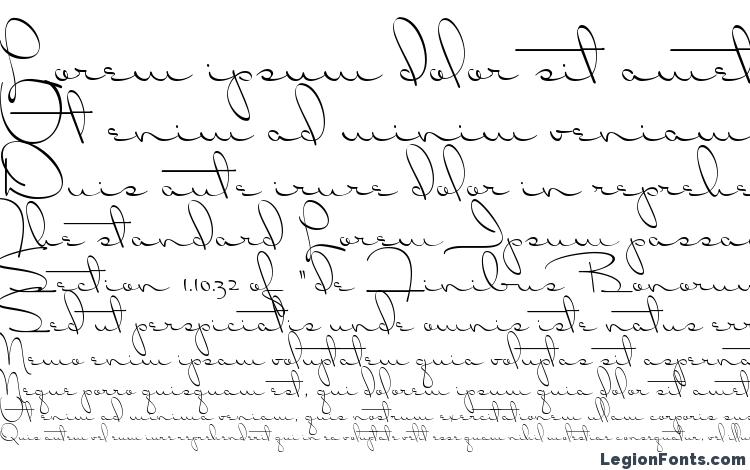 Lorem ipsum dolor sit amet
Ut enim ad minim veniam
Duis aute irure dolor in reprehe
The standard Lorem Ipsum passa
Section 1.10.32 of "de Finibus Bonorum
Sed ut perspiciatis unde omnis iste natus err
Nemo enim ipsam voluptatem quia voluptas sit asperna
Neque porro quisquam est, qui dolorem ipsum quia dolor sit amet
Ut enim ad minima veniam, quis nostrum exercitationem ullam corporis su
Quis autem vel eum iure reprehenderit qui in ea voluptate velit esse quam nihil molestiae consequatur, vel illu
LegionFonts.com